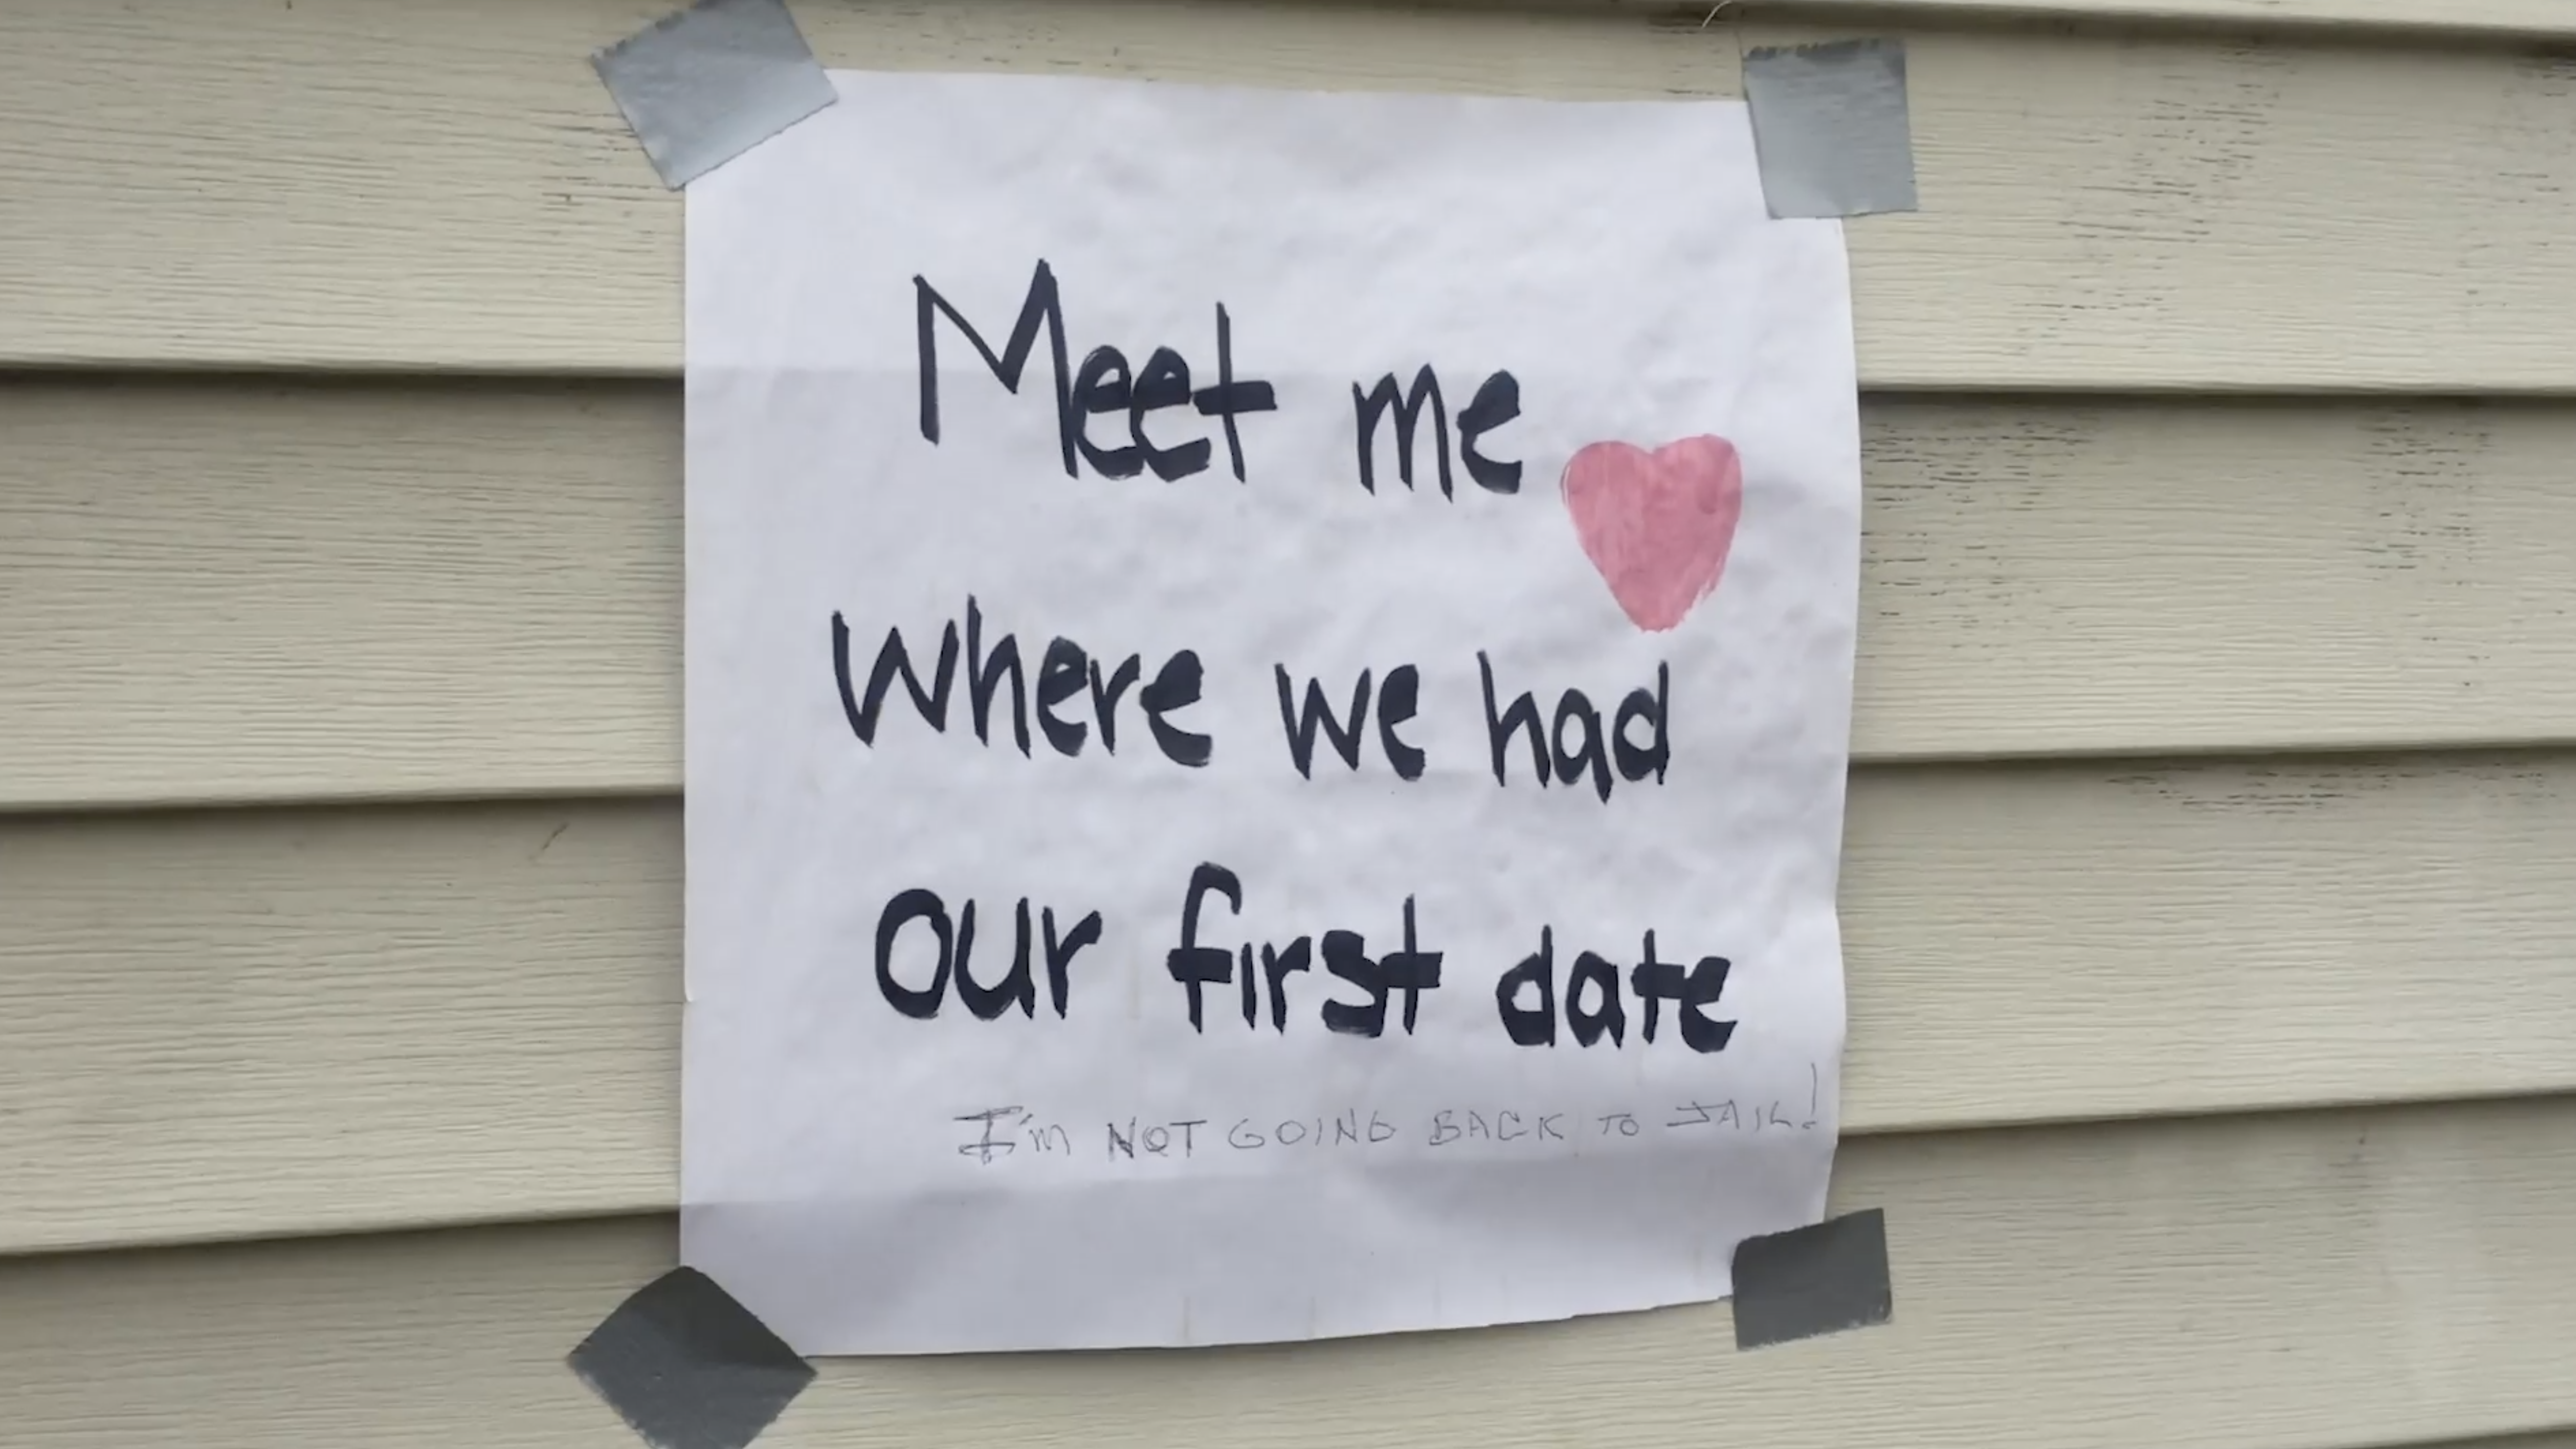 Meet me
where we had
our first date
I'm NOT GOING BACK TO JAIL!